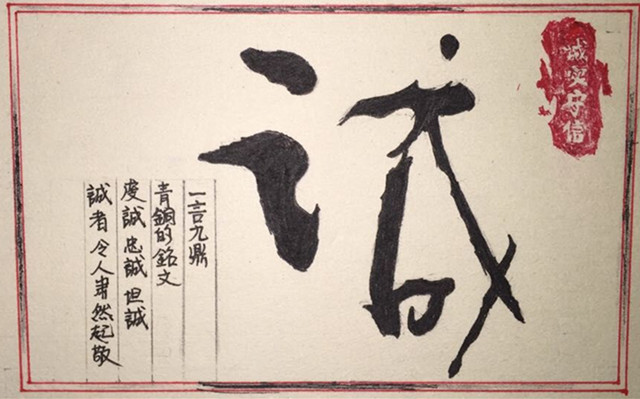 诚实守信
诚
一言九鼎
青銅的銘文
虔誠 忠誠 坦誠
誠者令人肅然起敬